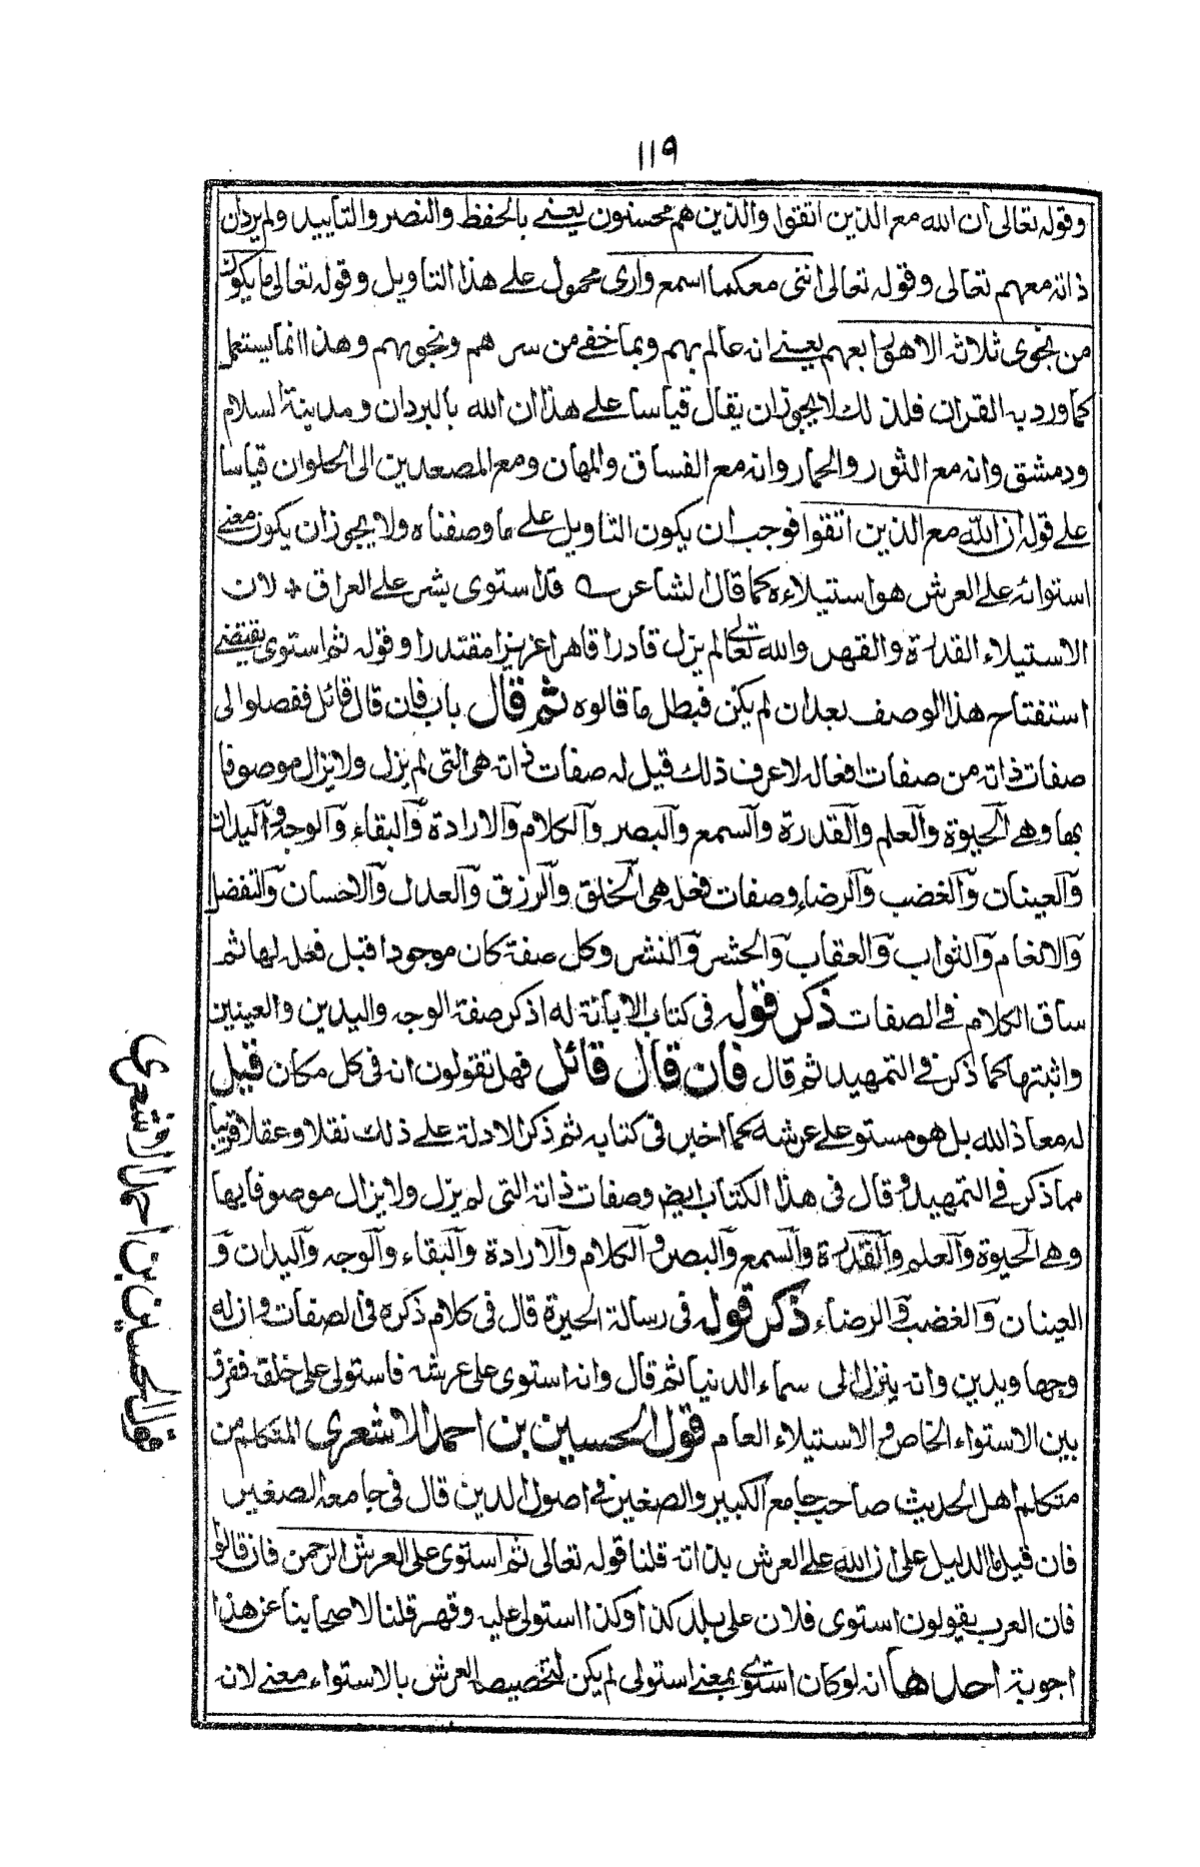 ١١٩
وقوله تعالى ان الله مع الذين اتقوا والذين هم محسنون يعنے بالحفظ والنصر والتاييد ولم يرد ان
ذاته معهم تعالى وقوله تعالى اننى معكما اسمع وارى محمول علے هذا التاويل وقوله تعالى ما يكون
من نجوى ثلاثه الا هو رابعهم يعنے انه عالم بهم وبما خفے من سرهم ونجوهم وهذا انما يستعمل
كما ورد به القران فلذلك لا يجوز ان يقال قياسا علے هذا ان الله بالبردان ومدينة السلام
ودمشق وانه مع الثور والحمار وانه مع الفساق والمهان ومع المصعدين الى الحلوان قياسا
علے قوله ان الله مع الذين اتقوا فوجب ان يكون التاويل علے ما وصفناه ولا يجوز ان يكون معنے
استوائه علے العرش هو استيلاءه كما قال الشاعر ؎ قد استوى بشر علے العراق + لان
الاستيلاء القدرة والقهر والله تعالى لم يزل قادرا قاهرا عزيزا مقتدرا وقوله ثم استوى يقتضے
استفتاح هذا الوصف بعد ان لم يكن فبطل ما قالوه ثم قال باب فان قال قائل ففصلوا لى
صفات ذاته من صفات افعاله لاعرف ذلك قيل له صفات ذاته هى التى لم يزل ولا يزال موصوفا
بها وهے الحيوة والعلم والقدرة والسمع والبصر والكلام والارادة والبقاء والوجه واليدان
والعينان والغضب والرضاء وصفات فعله هى الخلق والرزق والعدل والاحسان والتفضل
والانعام والثواب والعقاب والحشر والنشر وكل صفة كان موجودا قبل فعله لها ثم
ساق الكلام فے الصفات ذكر قوله فى كتاب الابانة له اذكر صفة الوجه واليدين والعينين
واثبتها كما ذكر فے التمهيد ثم قال فان قال قائل فهل تقولون انه فى كل مكان قيل
له معاذ الله بل هو مستو علے عرشه كما اخبر فى كتابه ثم ذكر الادلة علے ذلك نقلا وعقلا قريبا
مما ذكر فے التمهيد وقال فى هذا الكتاب ايضٖ وصفات ذاته التى لم يزل ولا يزال موصوفا بها
وهے الحيوة والعلم والقدرة والسمع والبصر والكلام والارادة والبقاء والوجه واليدان و
العينان والغضب والرضاء ذكر قوله فى رسالة الحيرة قال فى كلام ذكره فى الصفات وان له
وجها ويدين وانه ينزل الى سماء الدنيا ثم قال وانه استوى على عرشه فاستولى على خلقه ففرق
بين الاستواء الخاص و الاستيلاء العام قول الحسين بن احمد الاشعرى المتكلم من
متكلمے اهل الحديث صاحب جامع الكبير والصغير فے اصول الدين قال فى جامعه الصغير
فان قيل ما الدليل على ان الله علے العرش بذاته قلنا قوله تعالى ثم استوى على العرش الرحمن فان قالوا
فان العرب يقولون استوى فلان على بلد كذا وكذا استولى عليه وقهر قلنا لاصحابنا عن هذا
اجوبة احدها انه لو كان استوى بمعنے استولى لم يكن لتخصيص العرش بالاستواء معنے لانه
قول الحسين بن احمد الاشعرى